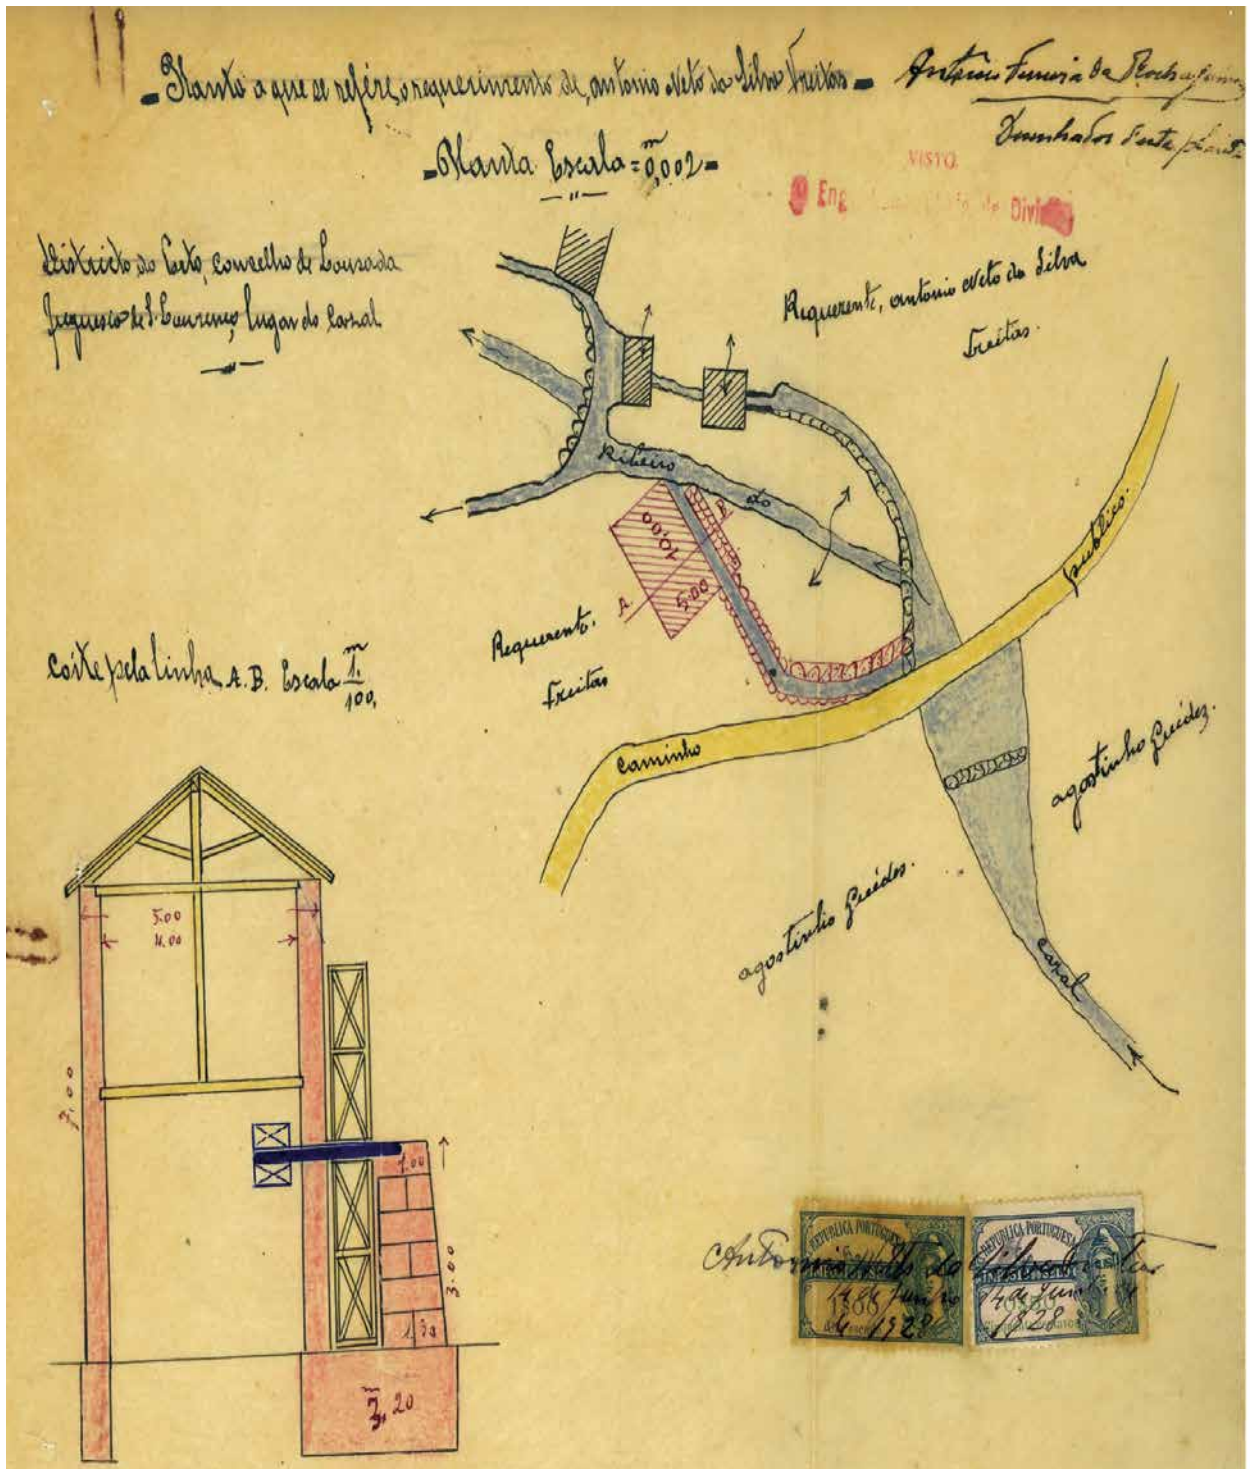 Planta a que se refére, o requerimento de, antonio Neto da Silva Freitas
Antonio Ferreira da Rocha
Desenhador desta planta
Planta Escala = 0,002 m
VISTO
O Eng
Divi
Districto do Porto, concelho de Lousada
freguesia de S. Lourenço, lugar do Casal
Requerente, antonio Neto da Silva
Freitas.
Ribeiro
do
publico.
10,00
B
5.00
A
Requerente.
Freitas
córte pela linha A.B. Escala 1/100, m
caminho
agostinho Guédes.
agostinho Guédes.
casal
5.00
4.00
7.00
1.00
3.00
1,30
m
3,20
REPUBLICA PORTUGUESA
REPUBLICA PORTUGUESA
Antonio Neto da Silva Freitas
14 de Junho
14 de Junho
1$00
de 1928
1928